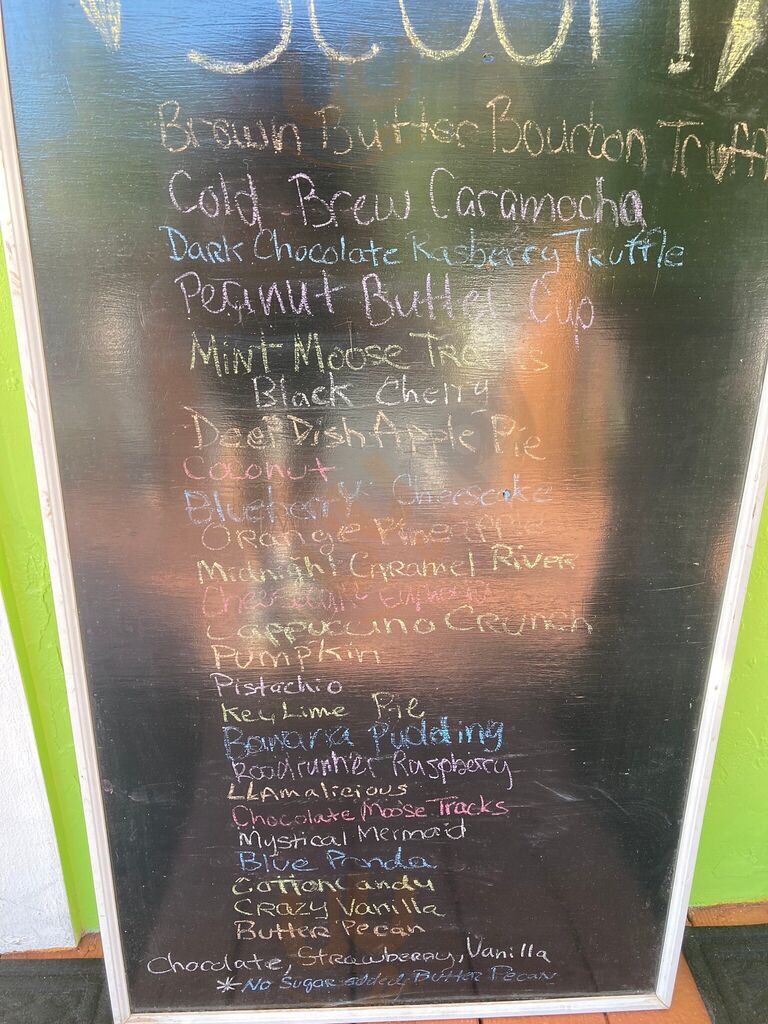 Brown Butter Bourbon Truff
Cold Brew Caramocha
Dark Chocolate Rasberry Truffle
Peanut Butter Cup
Mint Moose Tracks
Black Cherry
Deep Dish Apple Pie
Coconut
Blueberry Cheesecake
Orange Pineapple
Midnight Caramel River
Cappuccino Crunch
Pumpkin
Pistachio
Key Lime Pie
Banana Pudding
Roadrunner Raspberry
LLAmalicious
Chocolate Moose Tracks
Mystical Mermaid
Blue Panda
Cotton Candy
Crazy Vanilla
Butter Pecan
Chocolate, Strawberry, Vanilla
*No Sugar added Butter Pecan